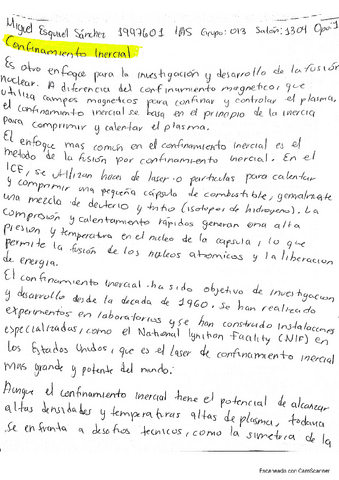 Miguel Esquivel Sánchez 1997601 IAS Grupo: 013 Salón: 3304 Opo: 1
Confinamiento Inercial
Es otro enfoque para la investigación y desarrollo de la fusión
nuclear. A diferencia del confinamiento magnetico, que
utiliza campos magneticos para confinar y controlar el plasma,
el confinamiento inercial se basa en el principio de la inercia
para comprimir y calentar el plasma.
El enfoque mas común en el confinamiento inercial es el
metodo de la fusión por confinamiento inercial. En el
ICF, se utilizan haces de laser o particulas para calentar
y comprimir una pequeña cápsula de combustible, generalmente
una mezcla de deuterio y tritio (isotopos de hidrogeno). La
compresión y calentamiento rápidos generan una alta
presion y temperatura en el nucleo de la capsula, lo que
permite la fusión de los nucleos atomicos y la liberacion
de energia.
El confinamiento inercial ha sido objetivo de investigacion
y desarrollo desde la decada de 1960. Se han realizado
experimentos en laboratorios y se han construido instalaciones
especializadas, como el National Ignition Facility (NIF) en
los Estados Unidos, que es el laser de confinamiento inercial
mas grande y potente del mundo.
Aunque el confinamiento inercial tiene el potencial de alcanzar
altas densidades y temperaturas altas de plasma, todavia
se enfrenta a desafios tecnicos, como la simetria de la
Escaneado con CamScanner